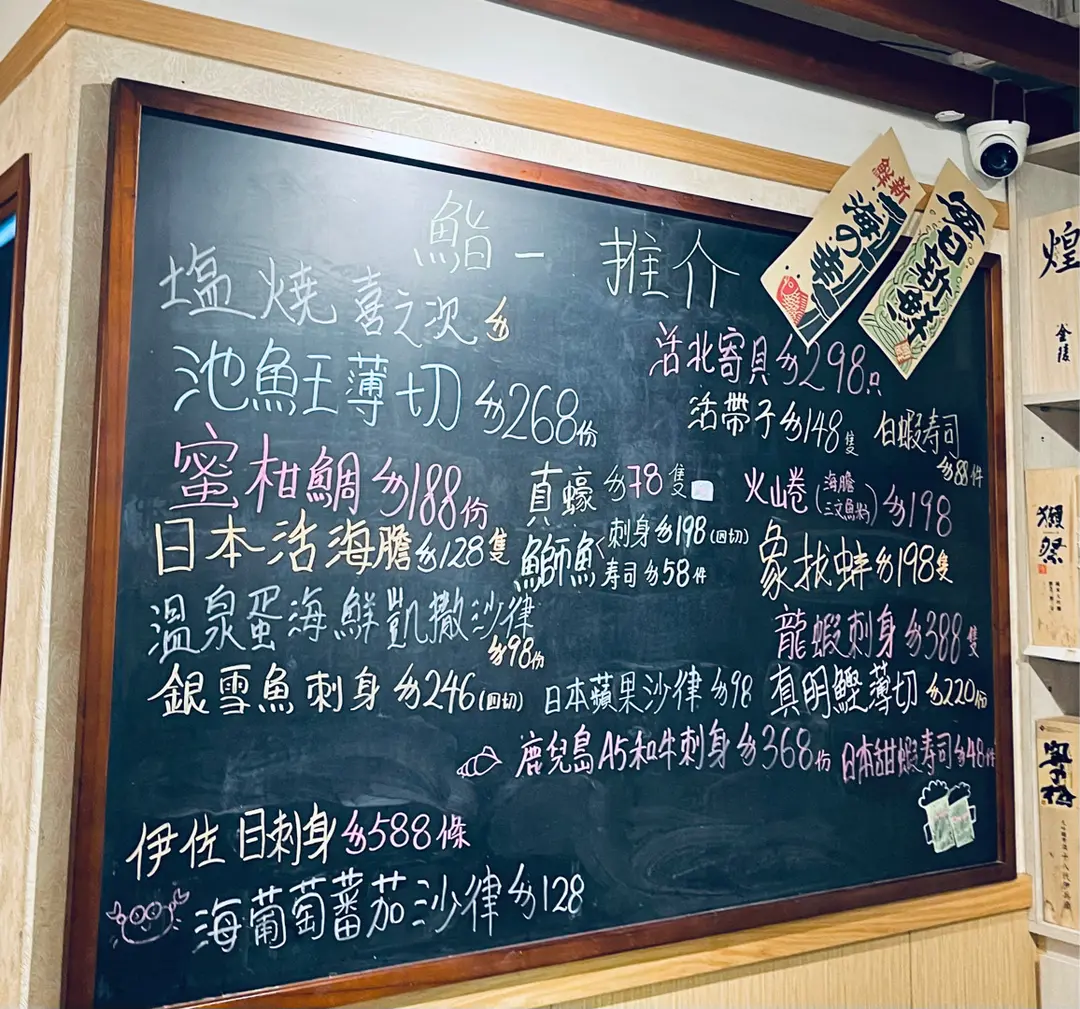 鮨一 推介
塩燒喜之次 $
池魚王薄切 $268份
蜜柑鯛 $188份
日本活海膽 $128隻
溫泉蛋海鮮凱撒沙律
$98份
銀雪魚刺身 $246(四切)
伊佐目刺身 $588條
海葡萄蕃茄沙律 $128
真蠔 $78隻
鰤魚< 刺身 $198(四切)
壽司 $58件
日本蘋果沙律 $98
鹿兒島A5和牛刺身 $368份
活北寄貝 $298只
活帶子 $148隻
白蝦寿司
$88件
火山卷(海膽
三文魚籽) $198
象拔蚌 $198隻
龍蝦刺身 $388隻
真明鰹薄切 $220份
日本甜蝦寿司 $48件
新鮮
海の幸
毎日新鮮
煌
金陵
獺祭